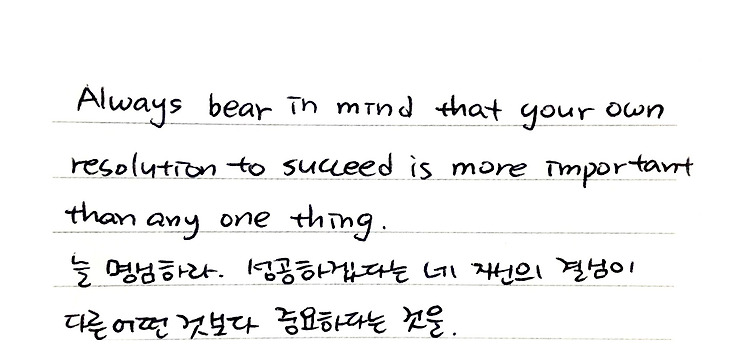 Always bear in mind that your own
resolution to succeed is more important
than any one thing.
늘 명심하라. 성공하겠다는 네 자신의 결심이
다른 어떤 것보다 중요하다는 것을.